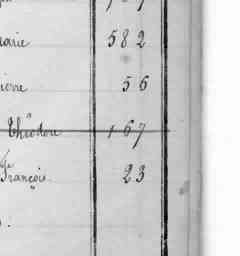 arie 582
ierre 56
Théodore 167
François 23